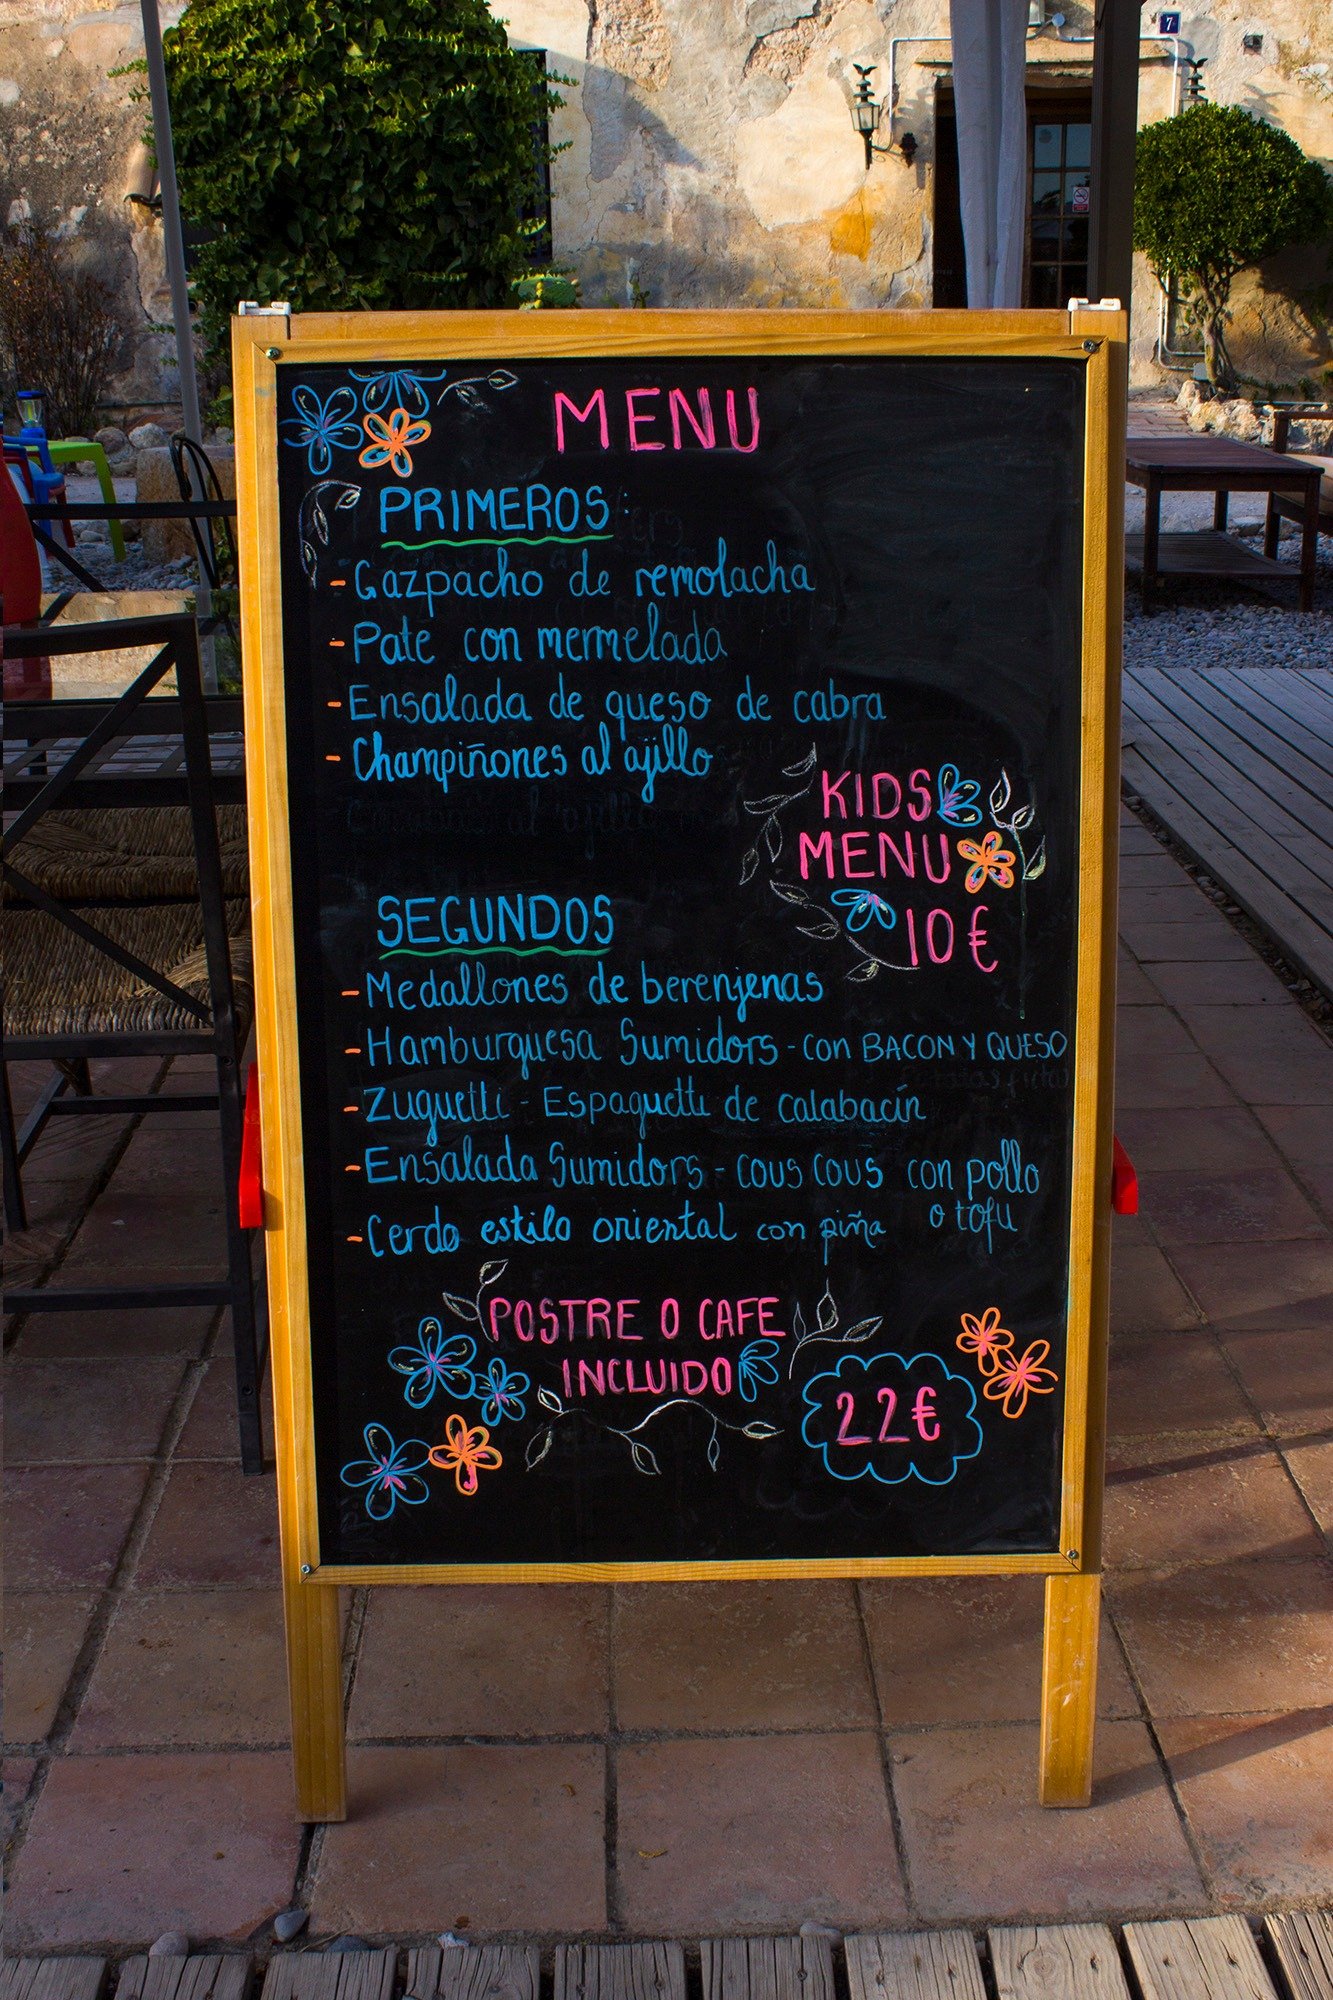 7
MENU
PRIMEROS:
-Gazpacho de remolacha
-Pate con mermelada
-Ensalada de queso de cabra
-Champiñones al ajillo
KIDS
MENU
10€
SEGUNDOS
-Medallones de berenjenas
-Hamburguesa Sumidors - con BACON Y QUESO
-Zuguetti - Espaguetti de calabacín
-Ensalada Sumidors - cous cous con pollo
o tofu
-Cerdo estilo oriental con piña
POSTRE O CAFE
INCLUIDO
22€